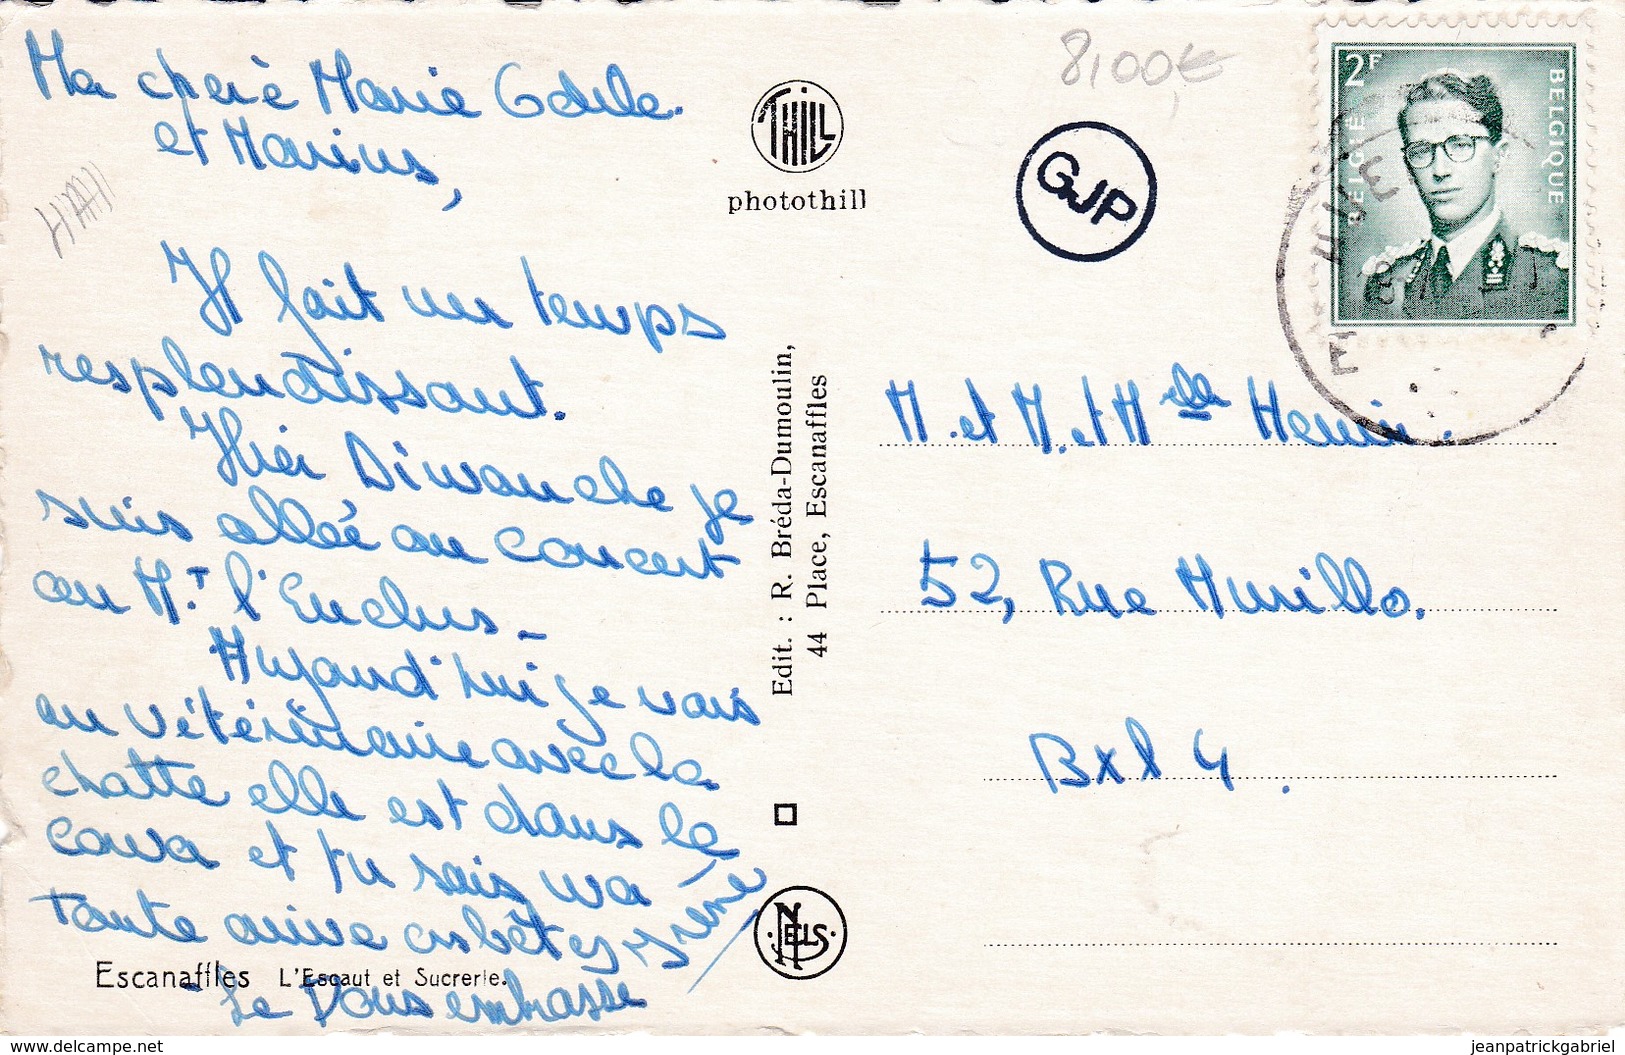 Ma cherè Marie Odile
et Marius,
Il fait un temps
resplendissant.
Hier Dimanche je
suis allée au concert
au Mt. l'Enclus_
Aujourd'hui je vais
au vétérinaire avec la
chatte elle est dans la
cava et tu sais ma
tante aime
Je Vous embrasse
Irène
Escanaffles L'Escaut et Sucrerie.
THILL
photothill
Edit. : R. Bréda-Dumoulin,
44 Place, Escanaffles
NELS
8,00€
GJP
2F
BELGIË BELGIQUE
M. et M. et Melle Hemin.
52, Rue Murillo.
Bxl 4.
www.delcampe.net
jeanpatrickgabriel